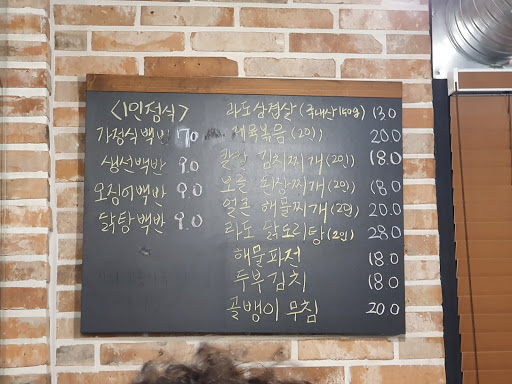 <1인정식>
가정식백반 7.0
생선백반 9.0
오징어백반 9.0
닭탕백반 9.0
라도삼겹살(국내산150g) 13.0
제육볶음(2인) 20.0
칼칼 김치찌개(2인) 18.0
회찌개(2인) 18.0
얼큰 해물찌개(2인) 20.0
라도 닭도리탕(2인) 28.0
해물파전 18.0
두부김치 18.0
골뱅이 무침 20.0